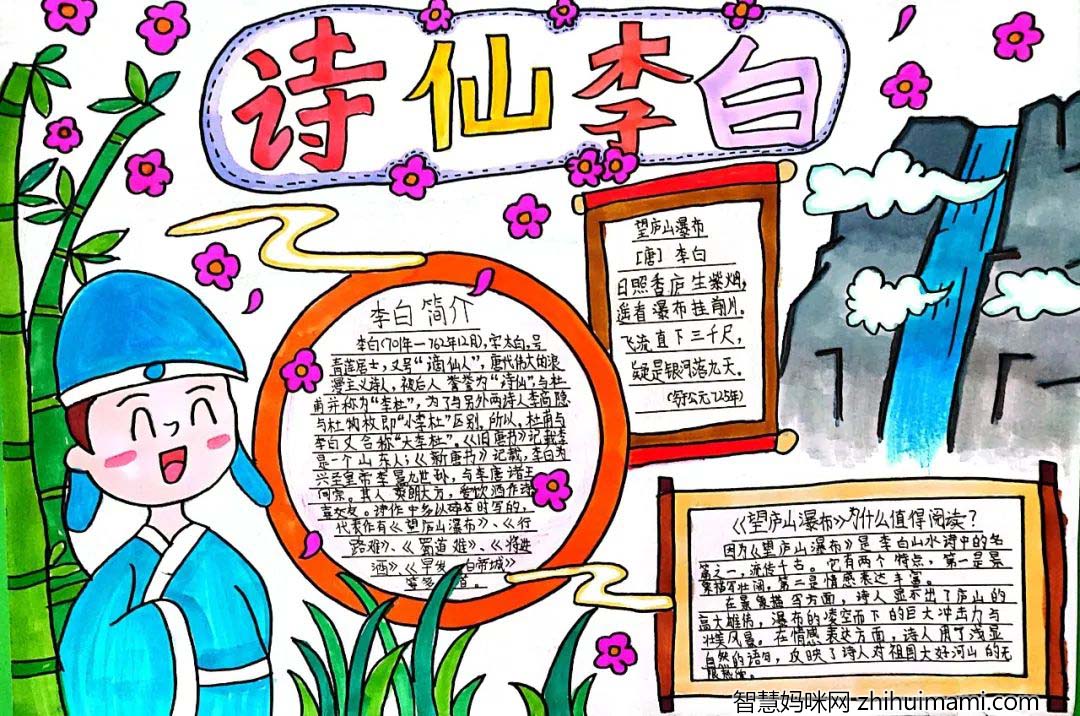 诗仙李白
李白简介
李白(701年—762年12月),字太白,号
青莲居士,又号“谪仙人”,唐代伟大的浪
漫主义诗人,被后人誉为“诗仙”与杜
甫并称为“李杜”,为了与另外两诗人李商隐
与杜牧即“小李杜”区别,所以,杜甫与
李白又合称“大李杜”。《旧唐书》记载李
是个山东人;《新唐书》记载,李白为
兴圣皇帝李暠九世孙,与李唐诸王
同宗。其人爽朗大方,爱饮酒作诗
喜交友。诗作中多以醉时写的,
代表作有《望庐山瀑布》、《行
路难》、《蜀道难》、《将进
酒》《早发白帝城》
等多首。
望庐山瀑布
[唐] 李白
日照香庐生紫烟,
遥看瀑布挂前川。
飞流直下三千尺,
疑是银河落九天。
(约公元725年)
《望庐山瀑布》为什么值得阅读?
因为《望庐山瀑布》是李白山水诗中的名
篇之一,流传千古。它有两个特点,第一是景
象描写壮阔,第二是情感表达丰富。
在景象描写方面,诗人显示出了庐山的
高大雄伟,瀑布的凌空而下的巨大冲击力与
壮美风景。在情感表达方面,诗人用了浅显
自然的语句,反映了诗人对祖国大好河山的无
限热爱。
智慧妈咪网-zhihuimami.com